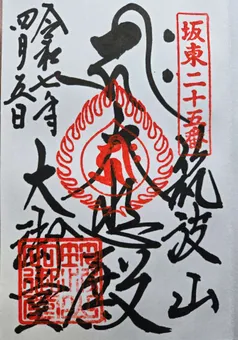 坂東二十五番
筑波山
大悲殿
大御堂
令和七年
四月五日